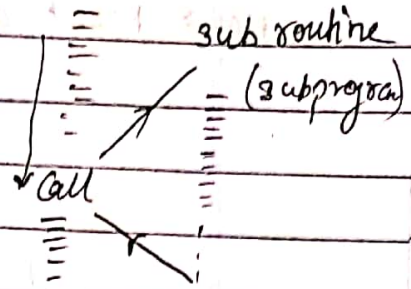 sub routine
(subprogram)
Call